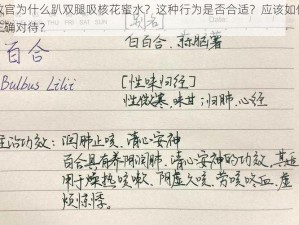 教官为什么趴双腿吸核花蜜水？这种行为是否合适？应该如何
正确对待？
百合
别名
白百合、蒜脑薯
Bulbus Lilii
[性味归经]
性微寒,味甘；归肺、心经
主治功效：润肺止咳，清心安神
百合具有养阴润肺、清心安神的功效，其
用于燥热咳嗽、阴虚久咳、劳嗽咳血、虚
烦惊悸。